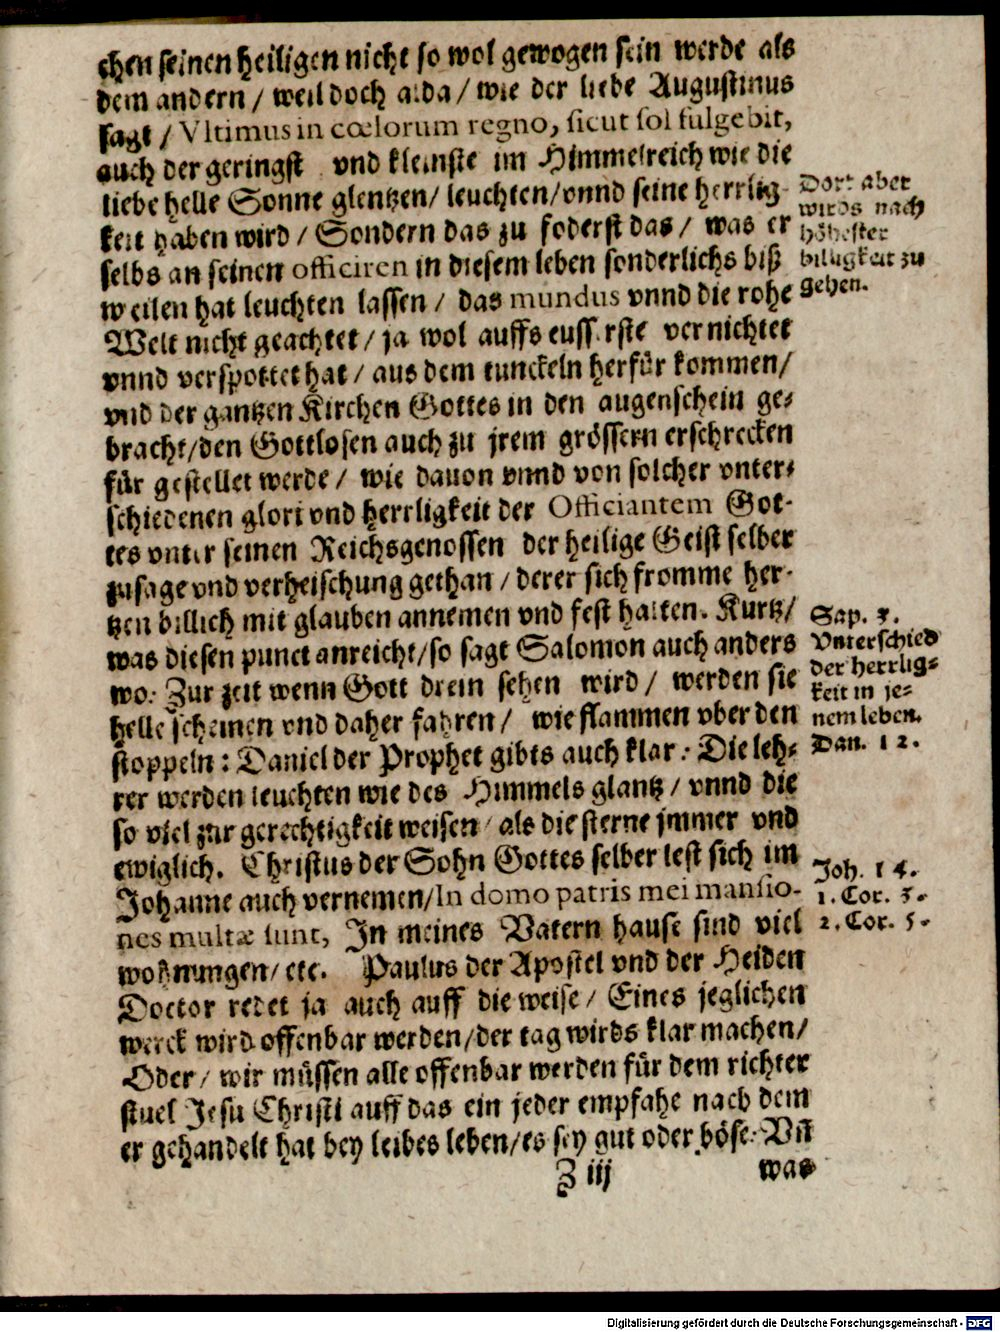 chen seinen heiligen nicht so wol gewogen sein werde als
dem andern / weil doch alda / wie der liebe Augustinus
sagt / Vltimus in cœlorum regno, sicut sol fulgebit,
auch der geringst vnd kleinste im Himmelreich wie die
liebe helle Sonne glentzen / leuchten / vnnd seine herrlig-
keit haben wird / Sondern das zu foderst das / was er
selbs an seinen officiren in diesem leben sonderlichs biß
weilen hat leuchten lassen / das mundus vnnd die rohe
Welt nicht geachtet / ja wol auffs eusserste vernichtet
vnnd verspottet hat / aus dem tunckeln herfür kommen /
vnd der gantzen Kirchen Gottes in den augenschein ge-
bracht / den Gottlosen auch zu jrem grössern erschrecken
für gestellet werde / wie dauon vnnd von solcher vnter-
schiedenen glori vnd herrligkeit der Officiantem Got-
tes vnter seinen Reichsgenossen der heilige Geist selber
zusage vnd verheischung gethan / derer sich fromme her-
tzen billich mit glauben annemen vnd fest halten. Kurtz /
was diesen punct anreicht / so sagt Salomon auch anders
wo: Zur zeit wenn Gott drein sehen wird / werden sie
helle scheinen vnd daher fahren / wie flammen vber den
stoppeln: Daniel der Prophet gibts auch klar: Die leh-
rer werden leuchten wie des Himmels glantz / vnnd die
so viel zur gerechtigkeit weisen / als die sterne jmmer vnd
ewiglich. Christus der Sohn Gottes selber lest sich im
Johanne auch vernemen / In domo patris mei mansio-
nes multæ sunt, In meines Vatern hause sind viel
wohnungen / etc. Paulus der Apostel vnd der Heiden
Doctor redet ja auch auff die weise / Eines jeglichen
werck wird offenbar werden / der tag wirds klar machen /
Oder / wir müssen alle offenbar werden für dem richter
stuel Jesu Christi auff das ein jeder empfahe nach dem
er gehandelt hat bey leibes leben / es sey gut oder böse. Vñ
Z iij was
Dort aber
wirds nach
höhester
billigkeit zu
gehen.
Sap. 3.
Vnterschied
der herrlig-
keit in je-
nem leben.
Dan. 12.
Joh. 14.
1. Cor. 3.
2. Cor. 5.
Digitalisierung gefördert durch die Deutsche Forschungsgemeinschaft - DFG